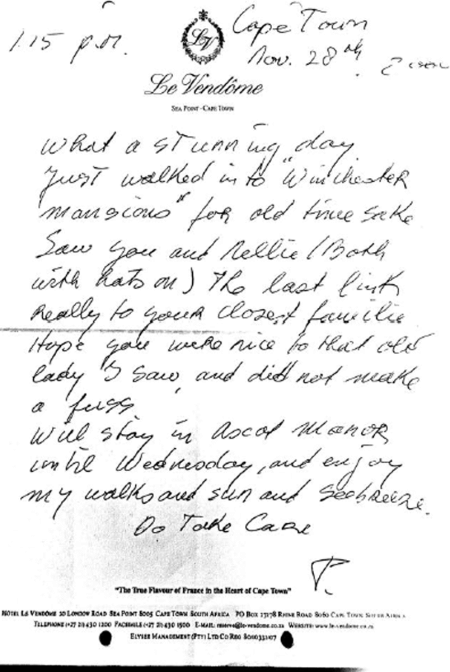 1.15 p.m.
Cape Town
Nov. 28th
LV
Le Vendôme
SEA POINT · CAPE TOWN
What a stunning day
Just walked in to "Winchester
Mansions" for old time sake
Saw you and Nellie (Both
with hats on) The last link
really to your closest familie
Hope you were nice to that old
lady I saw, and did not make
a fuss
Will stay in Ascot Manor
until Wednesday, and enjoy
my walks and sun and seabreeze.
Do Take Care
P.
"The True Flavour of France in the Heart of Cape Town"
HOTEL LE VENDÔME 20 LONDON ROAD SEA POINT 8005 CAPE TOWN SOUTH AFRICA PO BOX 13178 RHINE ROAD 8050 CAPE TOWN SOUTH AFRICA
TELEPHONE (+27 21) 430 1200 FACSIMILE (+27 21) 430 1500 E-MAIL: reserve@le-vendome.co.za WEBSITE: www.le-vendome.co.za
ELYSEE MANAGEMENT (PTY) LTD CO REG